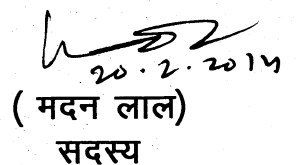 20.2.2014
( मदन लाल)
सदस्य